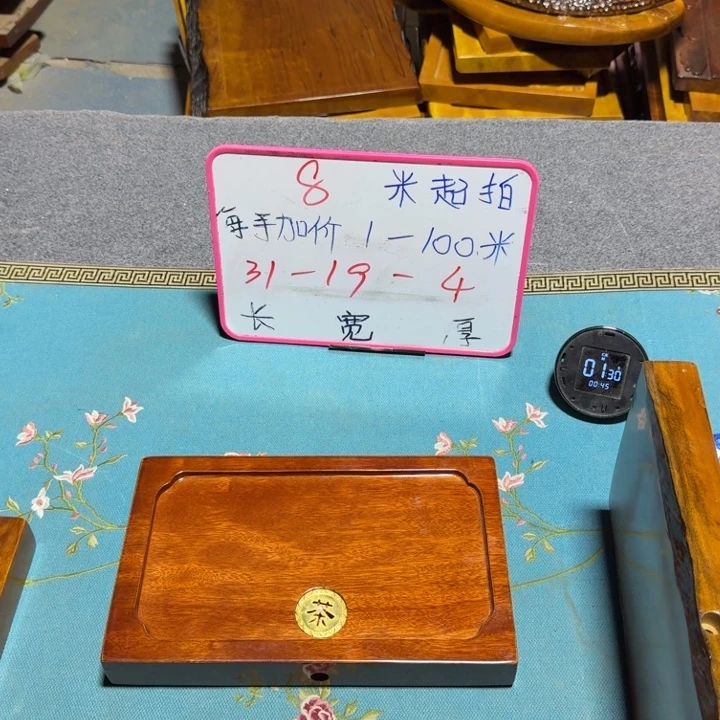 8 米起拍
每手加价 1-100.米
31-19-4
长 宽 厚
01:30
00:45
茶